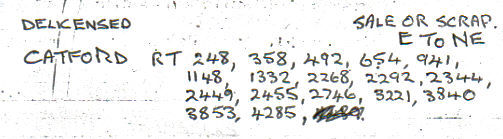 DELICENSED SALE OR SCRAP.
E TO NE
CATFORD RT 248, 358, 492, 654, 941,
1148, 1332, 2268, 2292, 2344,
2449, 2455, 2746, 3221, 3840
3853, 4285,